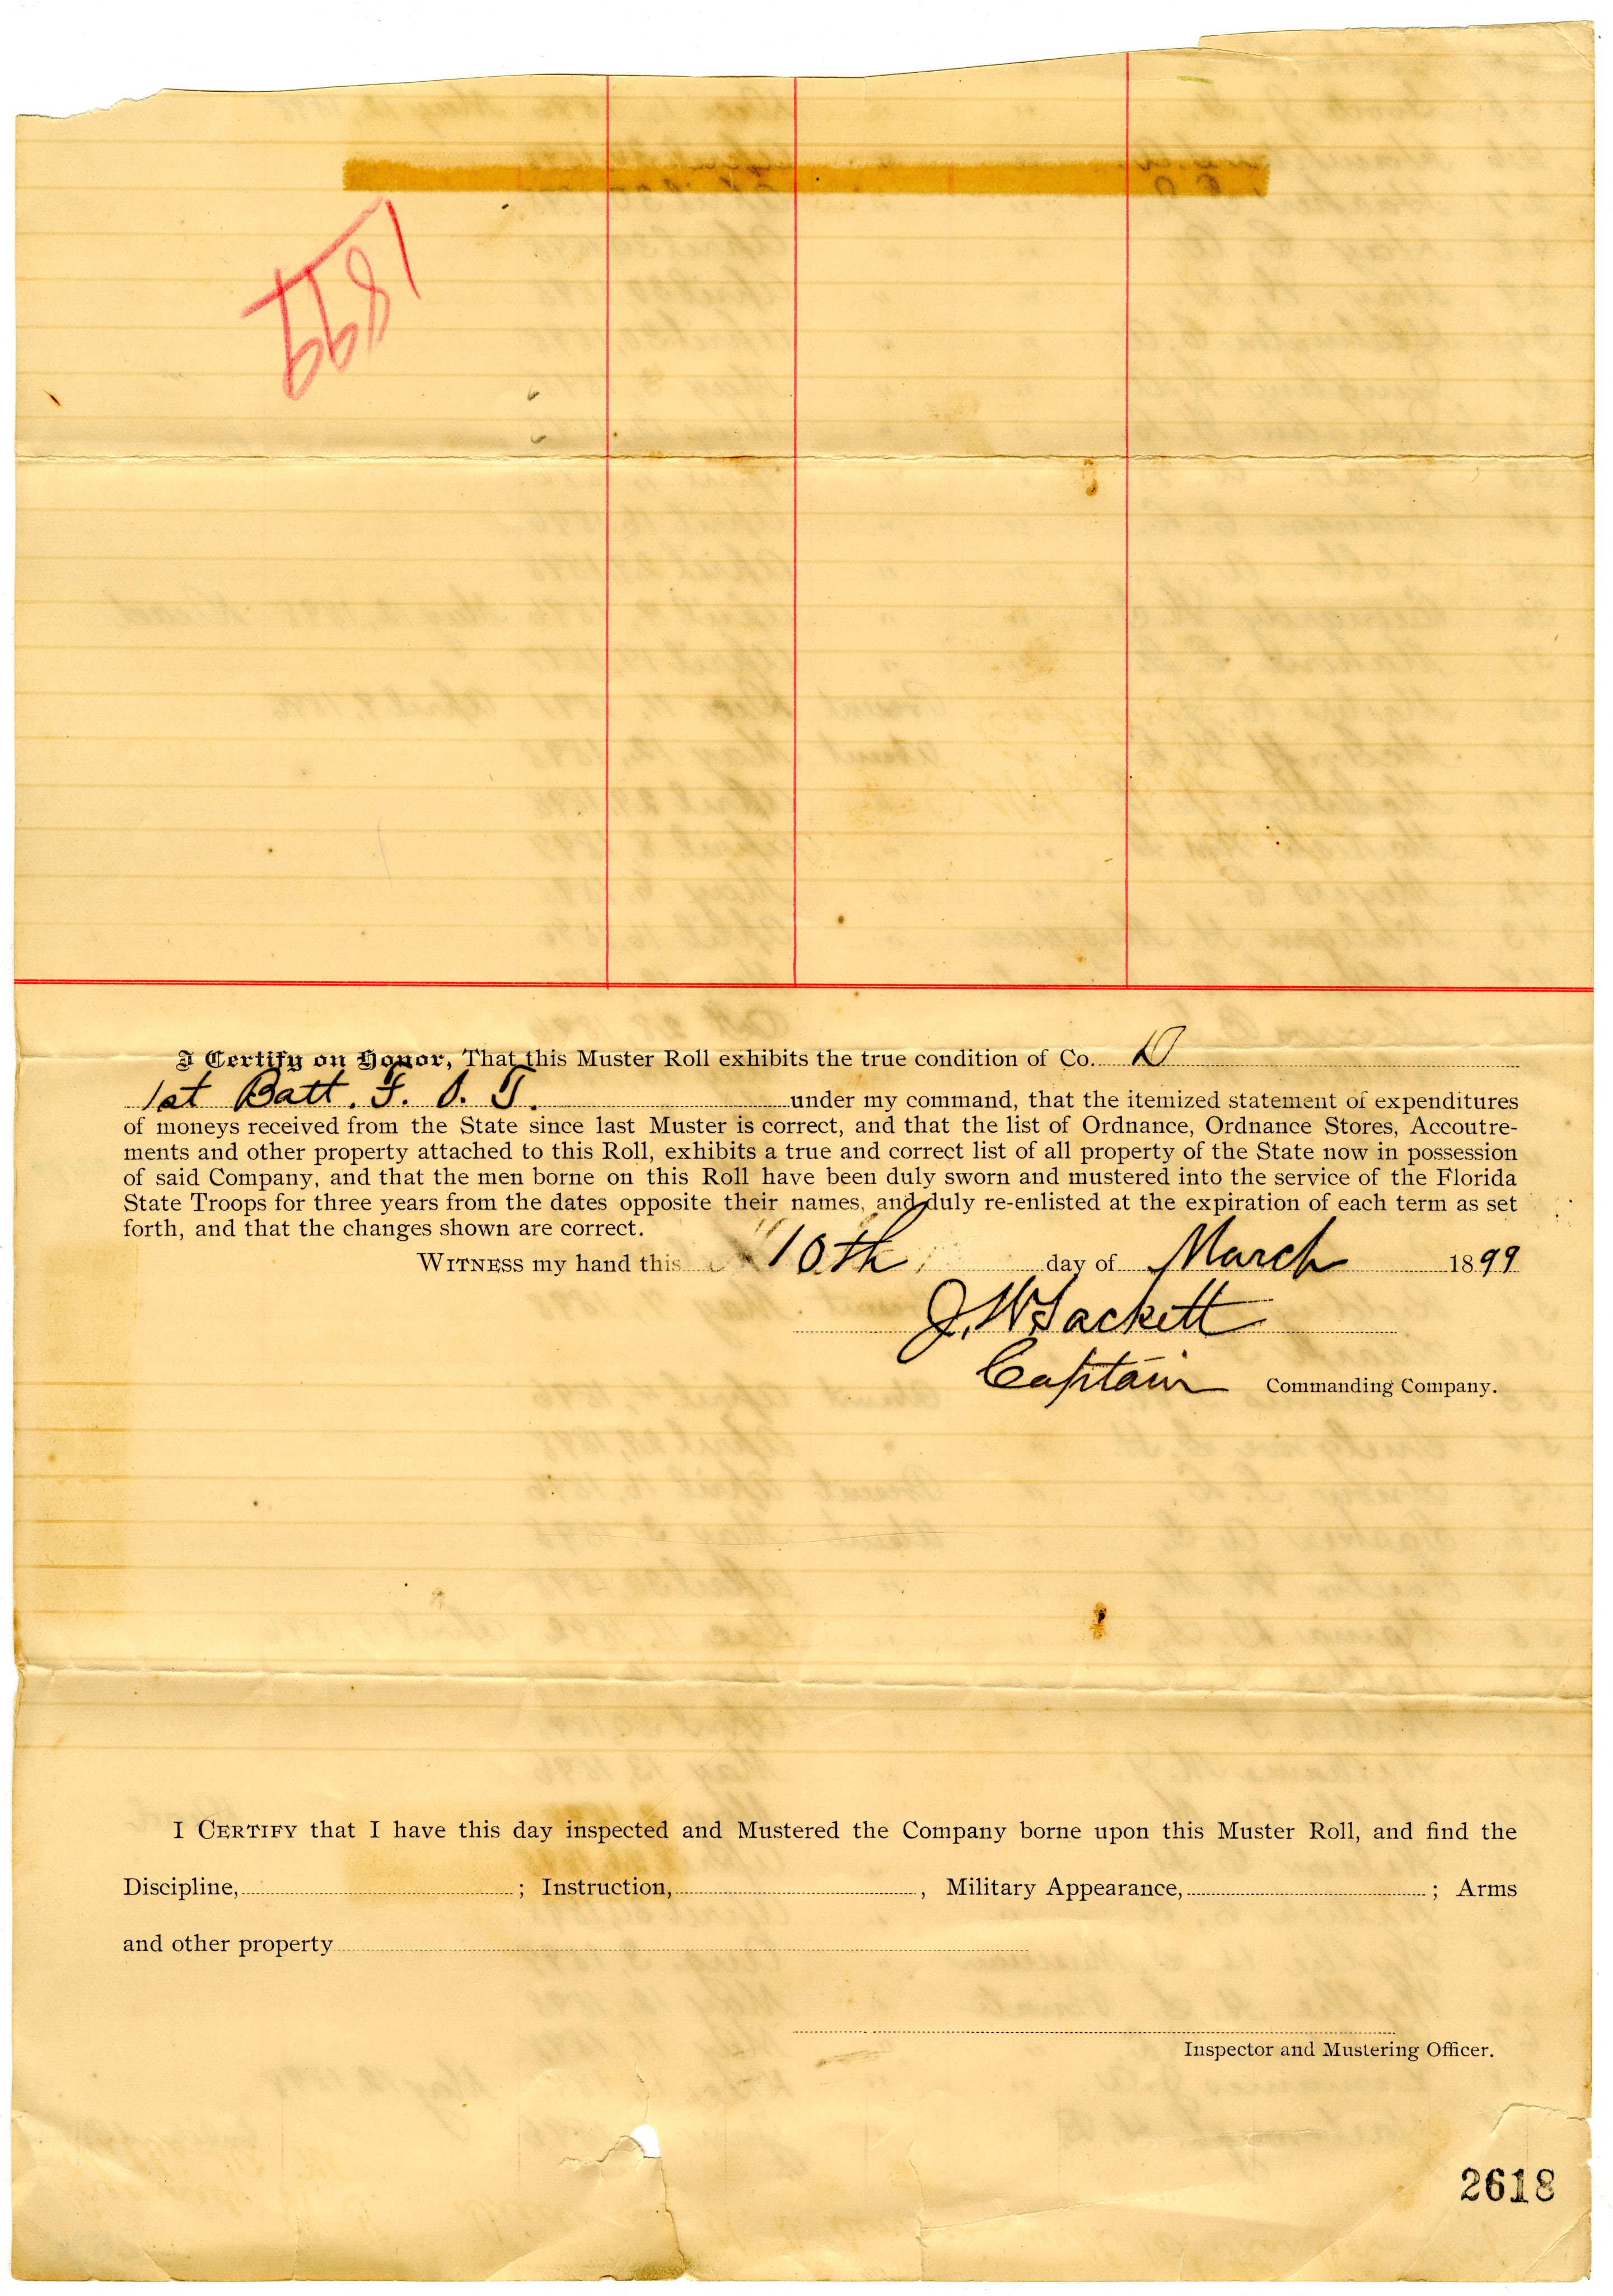 1899
I Certify on Honor, That this Muster Roll exhibits the true condition of Co. D
1st Batt. F. S. T. under my command, that the itemized statement of expenditures
of moneys received from the State since last Muster is correct, and that the list of Ordnance, Ordnance Stores, Accoutre-
ments and other property attached to this Roll, exhibits a true and correct list of all property of the State now in possession
of said Company, and that the men borne on this Roll have been duly sworn and mustered into the service of the Florida
State Troops for three years from the dates opposite their names, and duly re-enlisted at the expiration of each term as set
forth, and that the changes shown are correct.
WITNESS my hand this 10th day of March 1899
J. W. Sackett
Captain Commanding Company.
I CERTIFY that I have this day inspected and Mustered the Company borne upon this Muster Roll, and find the
Discipline, ; Instruction, , Military Appearance, ; Arms
and other property
Inspector and Mustering Officer.
2618